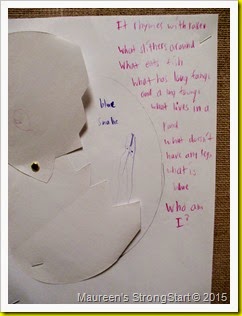 It rhymes with
What slithers around
What eats fish
What has long fangs
and a long tounge
What lives in a
pond
What doesn't
have any legs
what is
blue
Who am
I?
blue
snake
Maureen's StrongStart© 2015